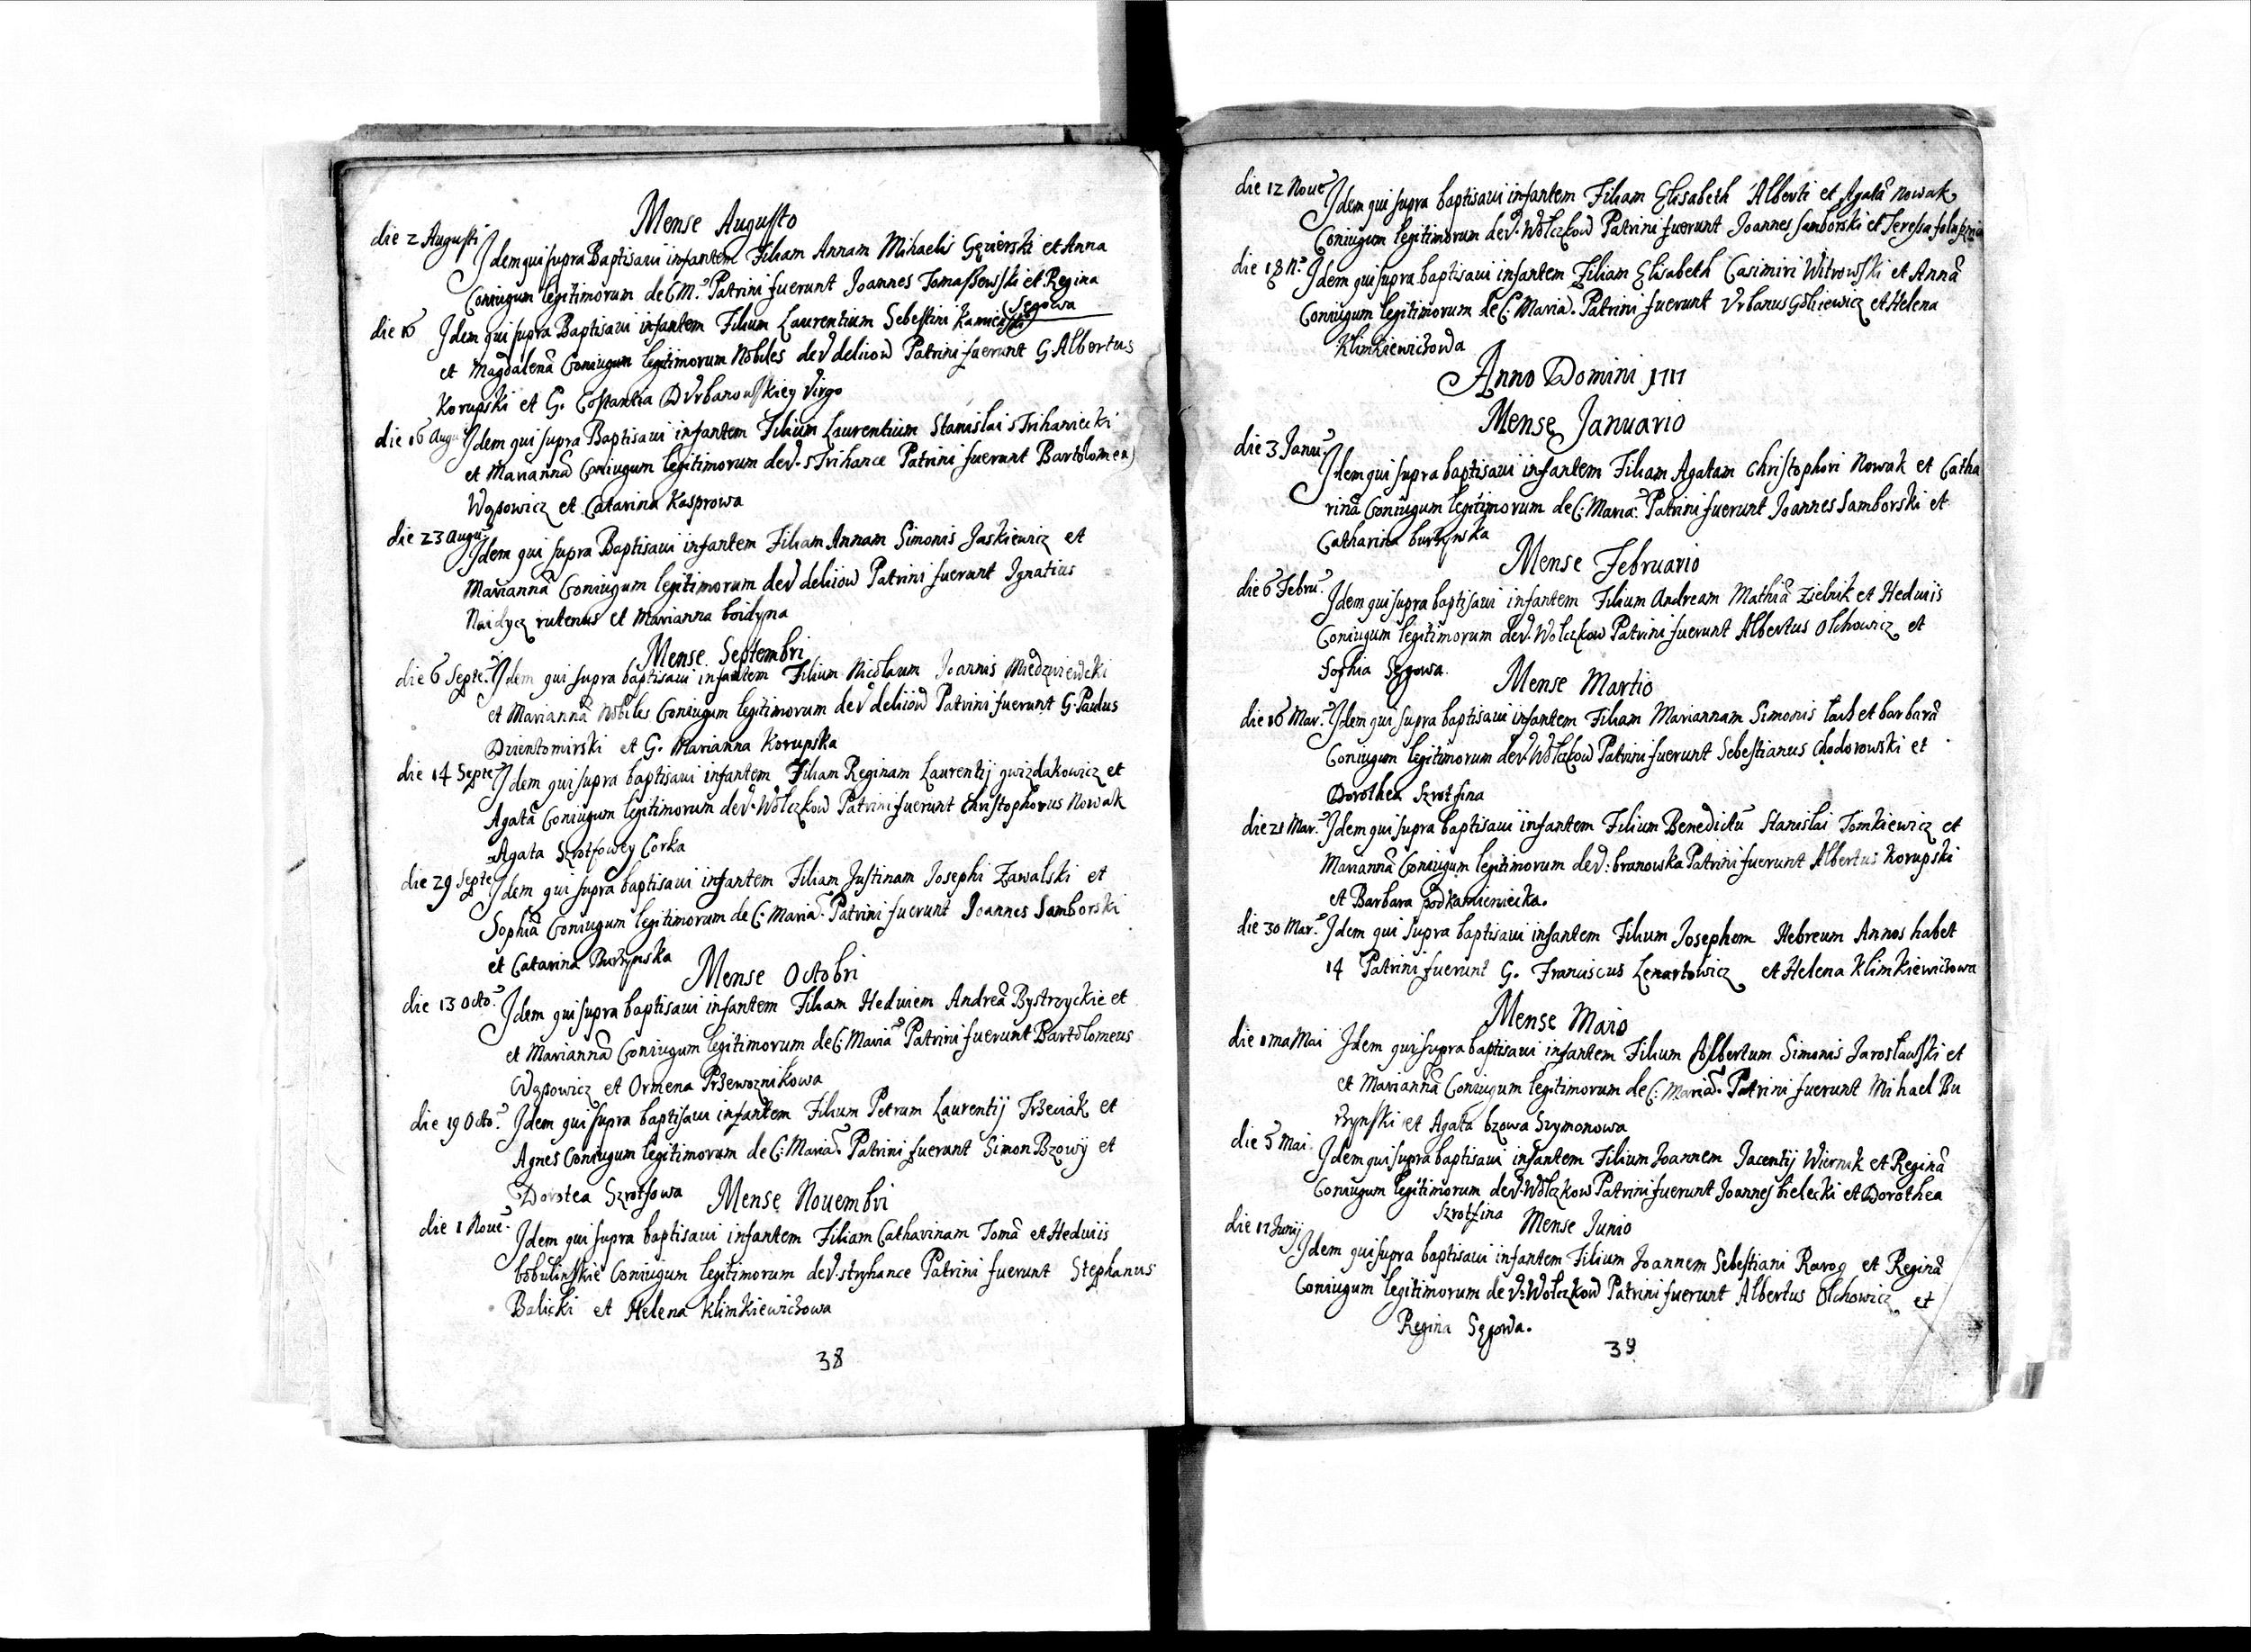 Mense Augusto
die 2 Augusti Idem qui supra Baptisaui infantem Filiam Annam Mihaelis Gęzierski et Anna
Coniugum legitimorum de C M. Patrini fuerunt Joannes Tomassewski et Regina
Segowa
die 16 Idem qui supra Baptisaui infantem Filium Laurentium Sebestini Kamieński
et Magdalenã Coniugum legitimorum Nobiles de V deliiow Patrini fuerunt G Albertus
Korupski et G. Costantia D Vrbanowskiey Virgo
die 16 Augu Idem qui supra Baptisaui infantem Filium Laurentium Stanislai sTrihaniecki
et Mariannã Coniugum legitimorum de V. sTrihance Patrini fuerunt Bartolomeu
Wąsowicz et Catarina Kasprowa
die 23 augu Idem qui supra Baptisaui infantem Filiam Annam Simonis Jaskiewicz et
Mariannã Coniugum legitimorum de V deliiow Patrini fuerunt Ignatius
Naidycz rutenus et Marianna boidyna
Mense Septembri
die 6 Septe. Idem qui supra baptisaui infantem Filium Nicolaum Joannis Miedzwiedzki
et Mariannã Nobiles Coniugum legitimorum de V deliiow Patrini fuerunt G. Paulus
Dzientomirski et G. Marianna Korupska
die 14 Septe Idem qui supra baptisaui infantem Filiam Reginam Laurentij gwizdakowicz et
Agatã Coniugum legitimorum de V. Wolczkow Patrini fuerunt Christophorus Nowak
Agata Szrotfowey Corka
die 29 Septe Idem qui supra baptisaui infantem Filiam Justinam Josephi Zawalski et
Sophiã Coniugum legitimorum de C. Mariã. Patrini fuerunt Joannes Samborski
et Catarina Burzynska
Mense Octobri
die 13 Octo. Idem qui supra baptisaui infantem Filiam Heduiem Andreã Bystrzyckie et
et Mariannã Coniugum legitimorum de C: Mariã Patrini fuerunt Bartolomeus
Wąsowicz et Ormena Przewoznikowa
die 19 Octo. Idem qui supra baptisaui infantem Filium Petrum Laurentij Trzeciak et
Agnes Coniugum legitimorum de C: Mariã. Patrini fuerunt Simon Bzowÿ et
Dorotea Szrotfowa
Mense Nouembri
die 1 Noue. Idem qui supra baptisaui infantem Filiam Catharinam Tomã et Heduiis
bobulinskie Coniugum legitimorum de V. stryhance Patrini fuerunt Stephanus
Balicki et Helena Klimkiewiczowa
38
die 12 Noue Idem qui supra baptisaui infantem Filiam Elisabeth Alberti et Agatã Nowak
Coniugum legitimorum de V. Wolczkow Patrini fuerunt Joannes Samborski et Teressa
die 18 N. Idem qui supra baptisaui infantem Filiam Elisabeth Casimiri Witrowski et Annã
Coniugum legitimorum de C: Mariã. Patrini fuerunt Vrbanus Gobiewicz et Helena
Klimkiewiczowa
Anno Domini 1717
Mense Januario
die 3 Janu. Idem qui supra baptisaui infantem Filiam Agatam Christophori Nowak et Catha
rinã Coniugum legitimorum de C: Mariã. Patrini fuerunt Joannes Samborski et
Catharina burzynska
Mense Februario
die 6 Febru. Idem qui supra baptisaui infantem Filium Andream Mathiã Zielnik et Heduiis
Coniugum legitimorum de V. Wolczkow Patrini fuerunt Albertus Olchowicz et
Sophia Sęgowa.
Mense Martio
die 16 Mar. Idem qui supra baptisaui infantem Filiam Mariannam Simonis Lach et barbarã
Coniugum legitimorum de V. Wolczkow Patrini fuerunt Sebestianus Chodorowski et
Dorothea Szrotfina
die 21 Mar. Idem qui supra baptisaui infantem Filium Benedictũ Stanislai Tomkiewicz et
Mariannã Coniugum legitimorum de V: branowska Patrini fuerunt Albertus Korupski
et Barbara Podkamieniecka.
die 30 Mar. Idem qui supra baptisaui infantem Filium Josephem Hebreum Annos habet
14 Patrini fuerunt G. Franciscus Lenartowicz et Helena Klimkiewiczowa
Mense Maio
die 1 ma Mai Idem qui supra baptisaui infantem Filium Albertum Simonis Jaroslawski et
et Mariannã Coniugum legitimorum de C: Mariã. Patrini fuerunt Mihael Bu
rzynski et Agata bzowa Szymonowa
die 5 Mai. Idem qui supra baptisaui infantem Filium Joannem Jacentij Wiernik et Reginã
Coniugum legitimorum de V. Wolczkow Patrini fuerunt Joannes bielecki et Dorothea
Szrotfina
Mense Junio
die 17 Junij Idem qui supra baptisaui infantem Filium Joannem Sebestiani Rarog et Reginã
Coniugum legitimorum de V. Wolczkow Patrini fuerunt Albertus Olchowicz et
Regina Sęgowa.
39